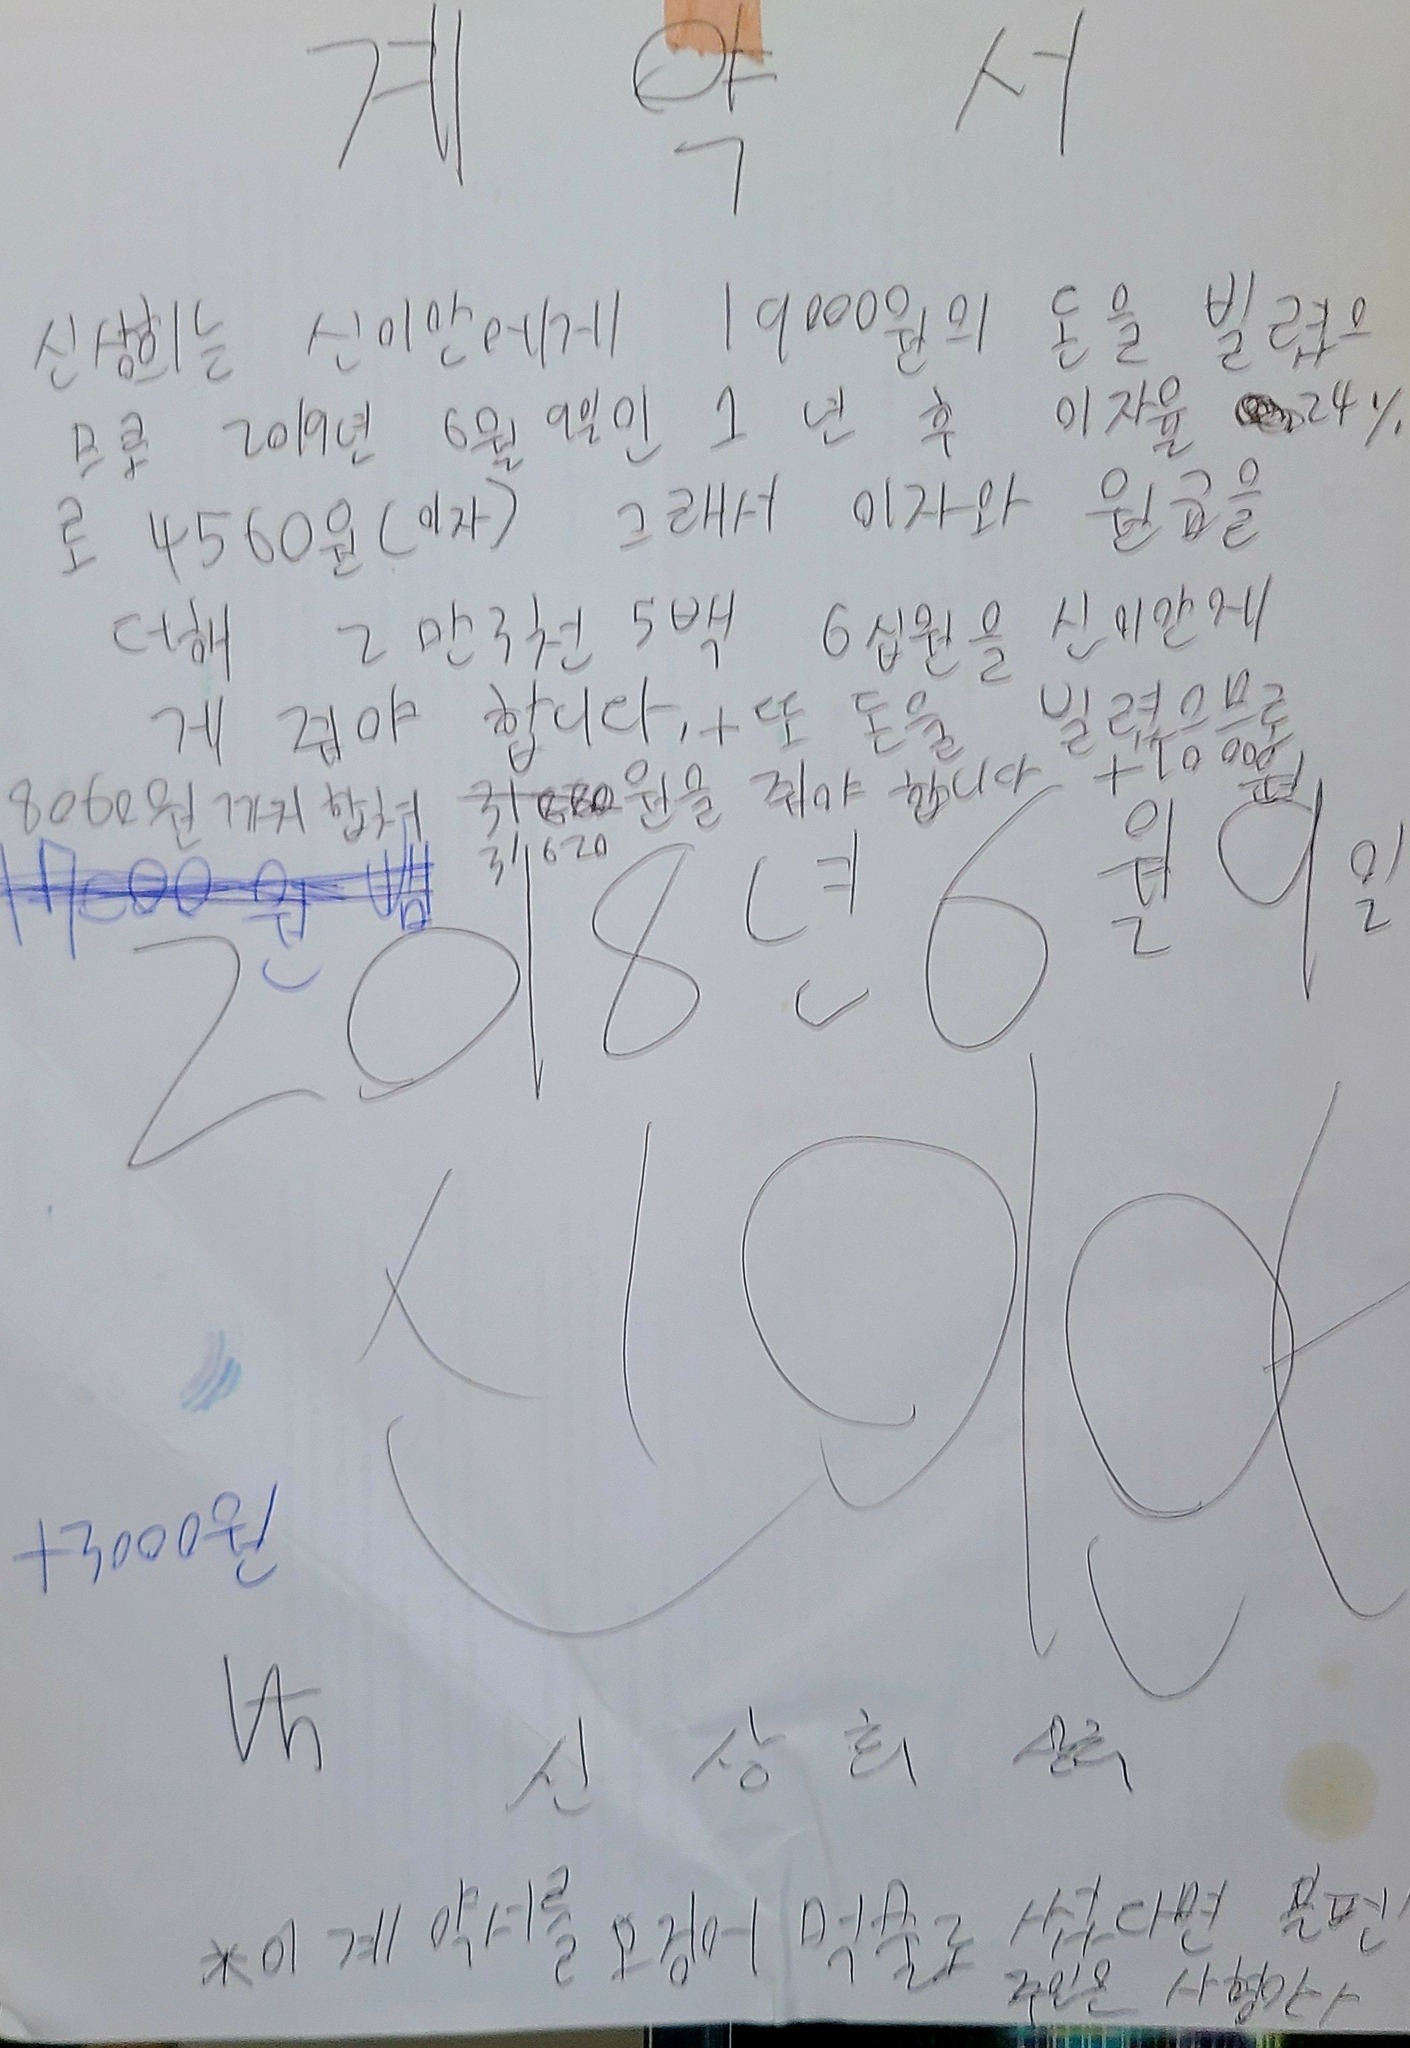 계약서
신상희는 신이안에게 19000원의 돈을 빌렸으
므로 2019년 6월 9일인 1년 후 이자율 24%
로 4560원(이자) 그래서 이자와 원금을
더해 2만3천 5백 6십원을 신이안게
게 줘야 합니다.+ 또 돈을 빌렸음므로
8060원까지 합쳐 31620원을 줘야 합니다 +10000원
17000원 뺌
2018년 6월 9일
신이안
+3000원
신 상 희 상희
*이 계약서를 오징어 먹물로 썼다면
주인은